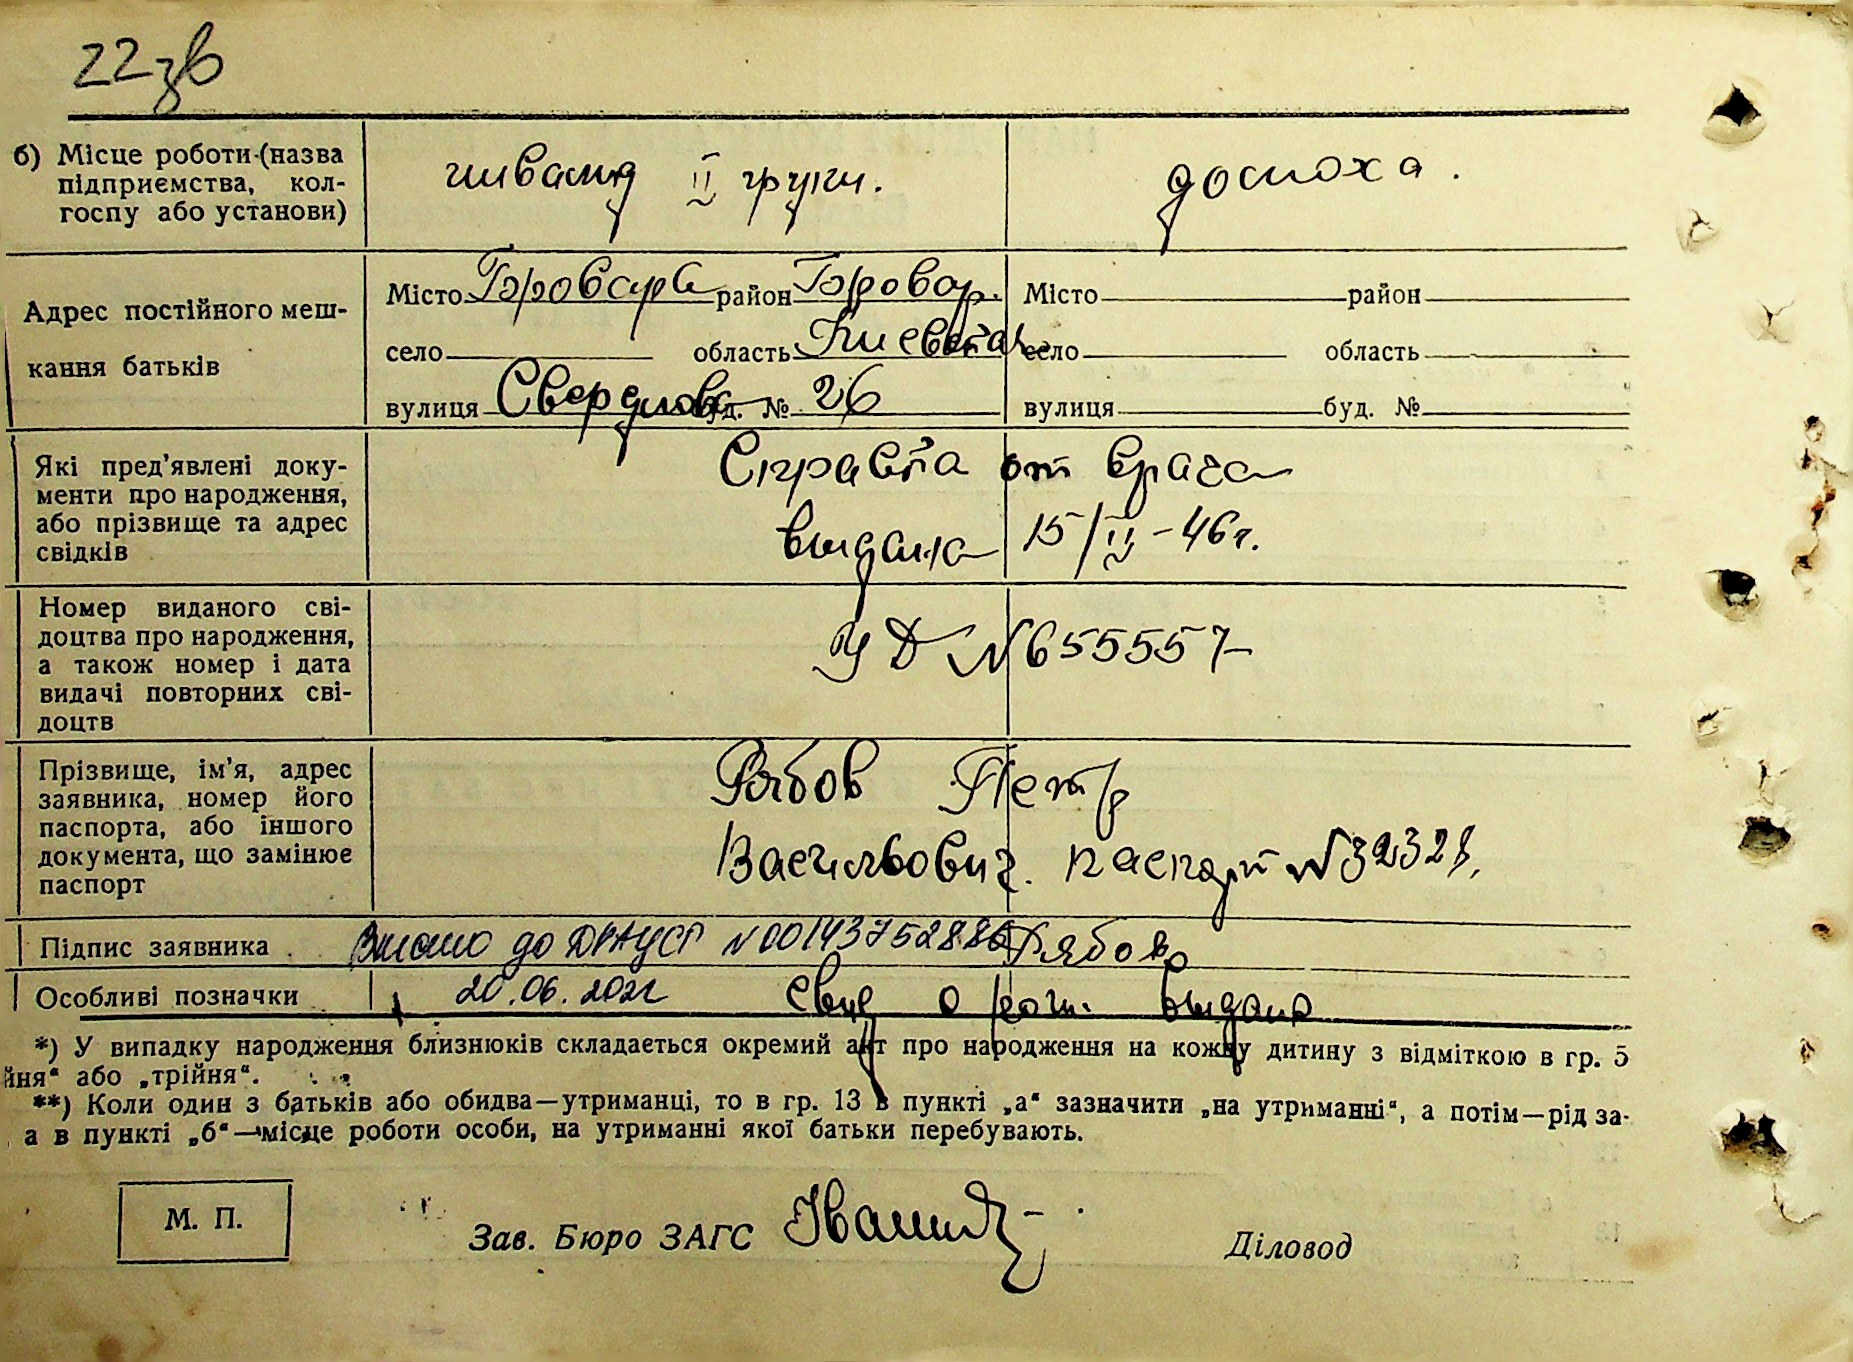 22зв
б) Місце роботи (назва
підприємства, кол-
госпу або установи)
инвалид II групи.
домоха.
Адрес постійного меш-
кання батьків
Місто Бровары район Бровар.
село область Киевская
вулиця Свердлова буд. № 26
Місто район
село область
вулиця буд. №
Які пред'явлені доку-
менти про народження,
або прізвище та адрес
свідків
Справка от врача
выдана 15/II-46г.
Номер виданого сві-
доцтва про народження,
а також номер і дата
видачі повторних сві-
доцтв
УД №655557
Прізвище, ім'я, адрес
заявника, номер його
паспорта, або іншого
документа, що замінює
паспорт
Рябов Петр
Васильович. паспорт №
Підпис заявника Внесено до ДРАЦСГ №00143752886 Рябов
Особливі позначки 20.06.202 свид о рож. выдано
*) У випадку народження близнюків складається окремий акт про народження на кожну дитину з відміткою в гр. 5
йня" або „трійня".
**) Коли один з батьків або обидва—утриманці, то в гр. 13 в пункті „а" зазначити „на утриманні", а потім—рід за-
а в пункті „б"—місце роботи особи, на утриманні якої батьки перебувають.
М. П.
Зав. Бюро ЗАГС
Діловод